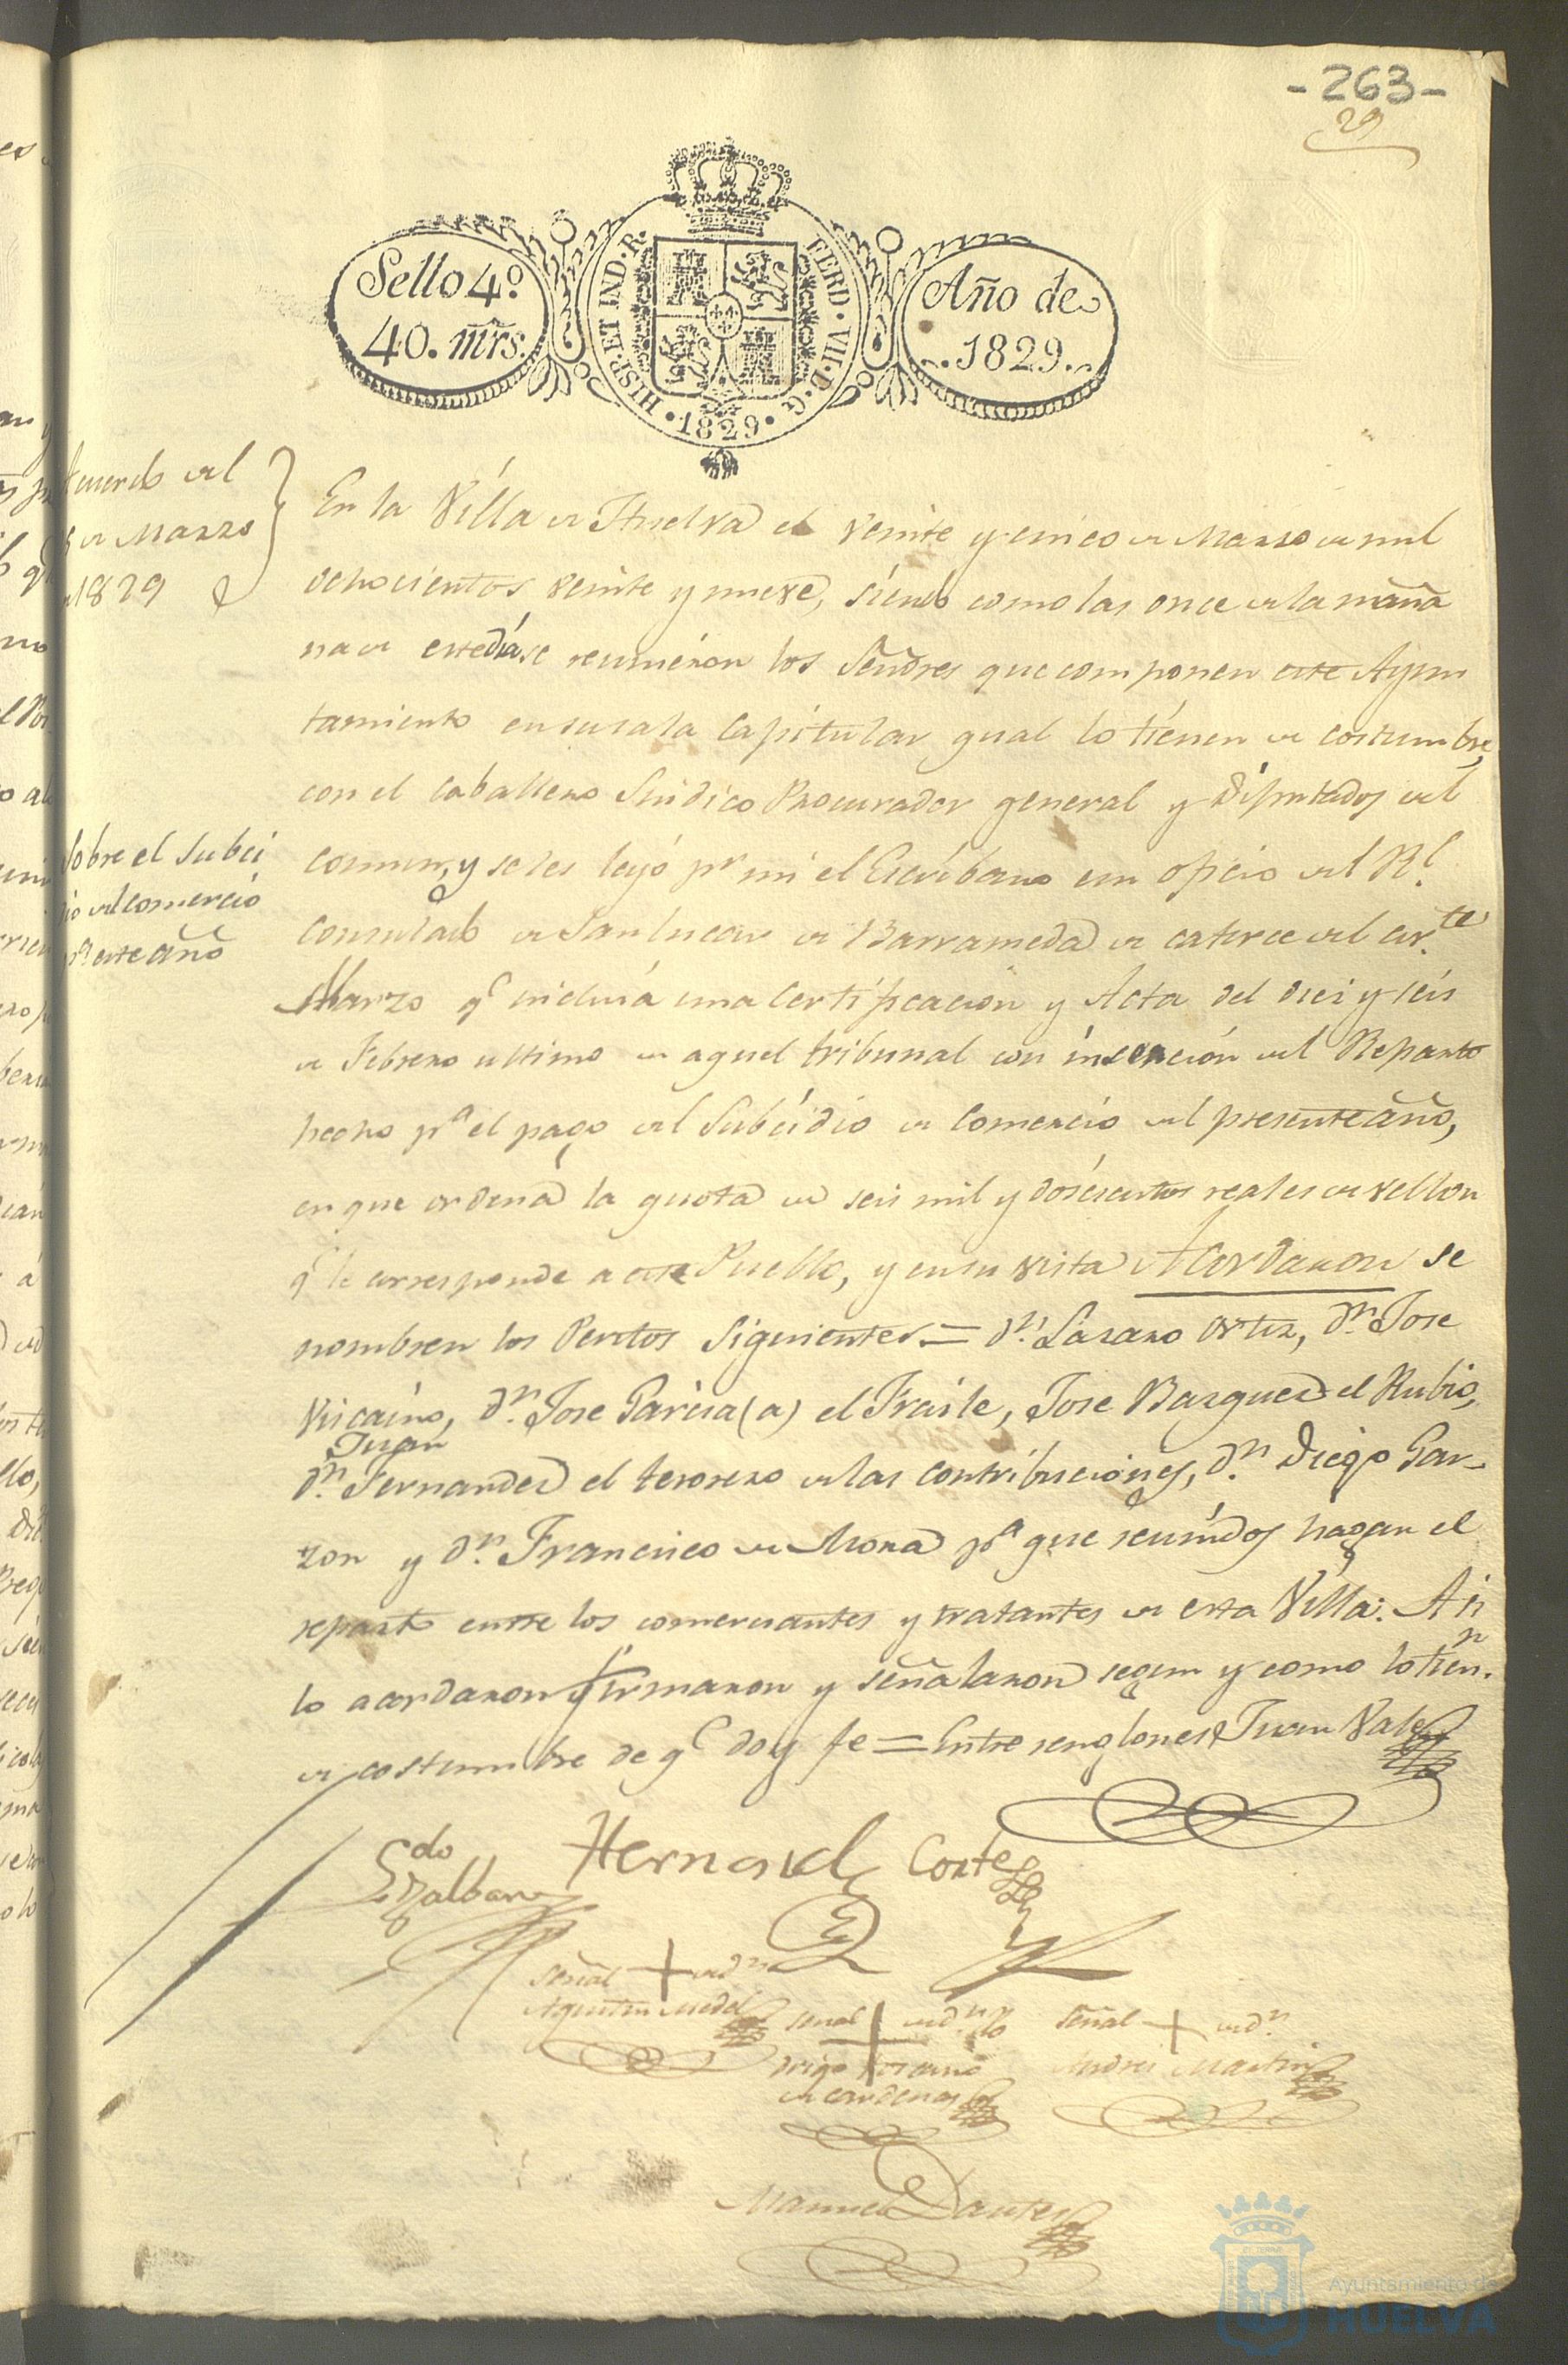 -263-
29
Sello 4.º
40. mrs.
HISP. ET IND. R.
FERD. VII. D. G.
1829
Año de
1829.
Acuerdo del
de Marzo
1829
En la Villa de Huelva el veinte y cinco de Marzo de mil
ochocientos veinte y nueve, siendo como las once de la maña
na de este dia se reunieron los Señores que componen este Ayun
tamiento en su sala Capitular qual lo tienen de costumbre,
con el caballero Sindico Procurador general y Diputados del
comun, y se les leyó pr mi el Escribano un oficio del Rl.
Consulado de Sanlucar de Barrameda de catorce del corte.
Marzo qe incluia una Certificacion y Acta del diez y seis
de Febrero ultimo de aquel tribunal con insercion del Reparto
hecho pa el pago del Subcidio de Comercio del presente año,
en que ordena la quota de seis mil y doscientos reales de vellon
qe le corresponde a este Pueblo, y en su vista Acordaron se
nombren los Peritos siguientes = Dn. Lazaro Ortiz, Dn. Jose
Viscaino, Dn. Jose Garcia (a) el Fraile, Jose Bazquez el Rubio,
Juan
Dn. Fernandez el tesorero de las contribuciones, Dn. Diego Gar-
zon y Dn. Francisco de Mora pa que reunidos hagan el
reparto entre los comerciantes y tratantes de esta Villa: Asi
lo acordaron firmaron y señalaron segun y como lo tienn.
de costumbre de qe doy fe = Entre renglones Juan Vale
Sobre el Subci
dio del comercio
pa. este año
Ldo
Hernand
Corte
señal + de Dn.
Agustin Medel
señal + de Dn.
Diego
de Cardenas
señal + de Dn.
Andres Martin
Manuel Dantes
Ayuntamiento de
HUELVA